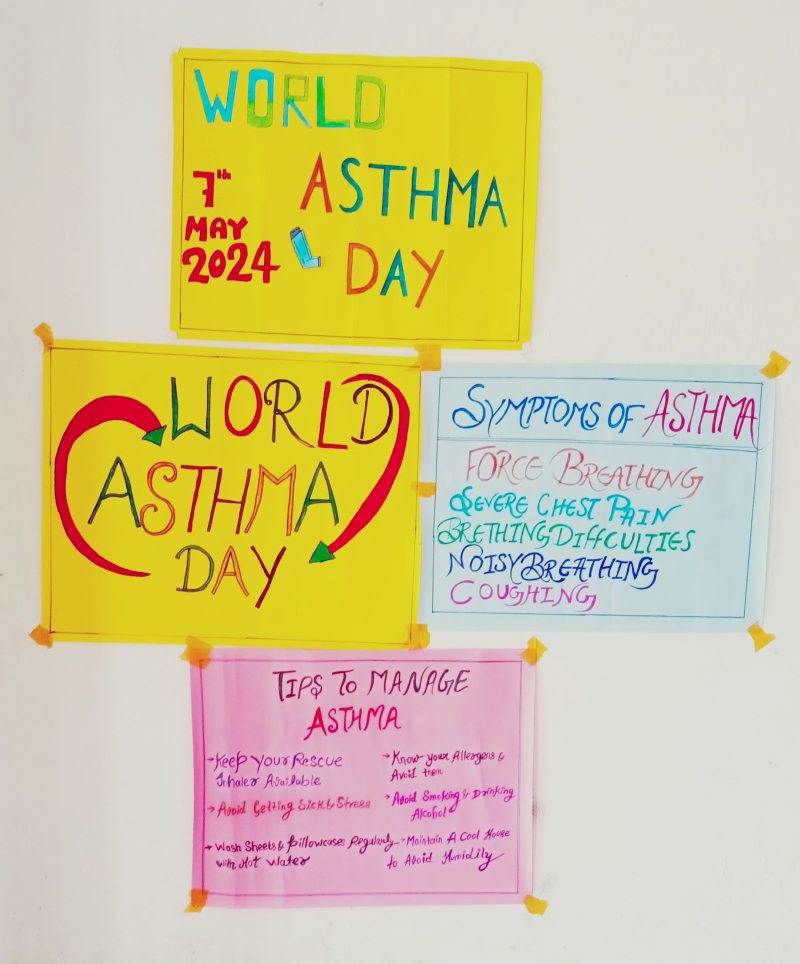 WORLD
ASTHMA
DAY
7th
MAY
2024
WORLD
ASTHMA
DAY
SYMPTOMS OF ASTHMA
FORCE BREATHING
SEVERE CHEST PAIN
BRETHING DIFFCULTIES
NOISY BREATHING
COUGHING
TIPS TO MANAGE
ASTHMA
→ Keep Your Rescue
Inhaler Available
→ Avoid Getting Sick & Stress
→ Wash Sheets & Pillowcases Regularly
with Hot Water
→ Know your Allergens &
Avoid them
→ Avoid Smoking & Drinking
Alcohol
→ Maintain A Cool House
to Avoid Humidity